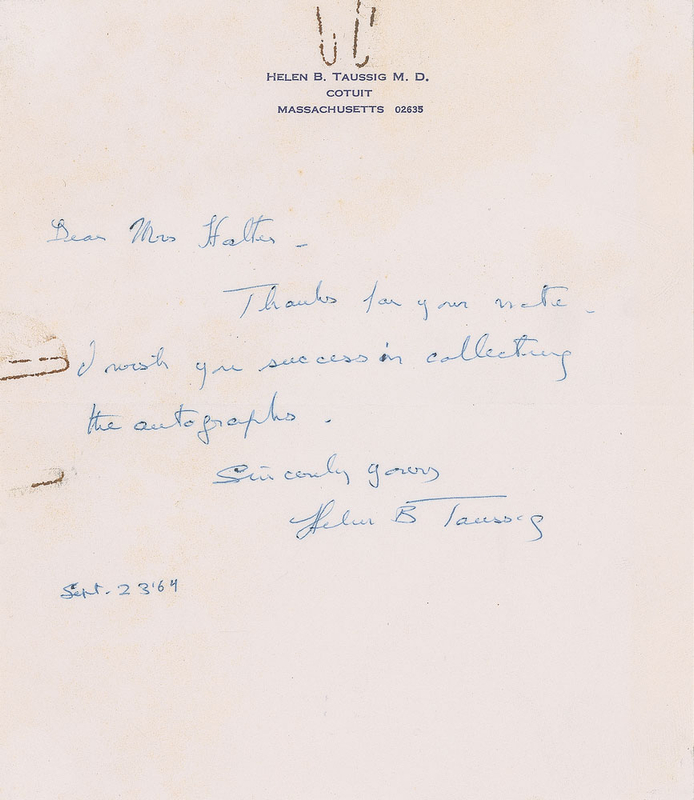 HELEN B. TAUSSIG M. D.
COTUIT
MASSACHUSETTS 02635
Dear Mrs Halter -
Thanks for your note -
I wish you success in collecting
the autographs.
Sincerely yours
Helen B Taussig
Sept. 23 '64